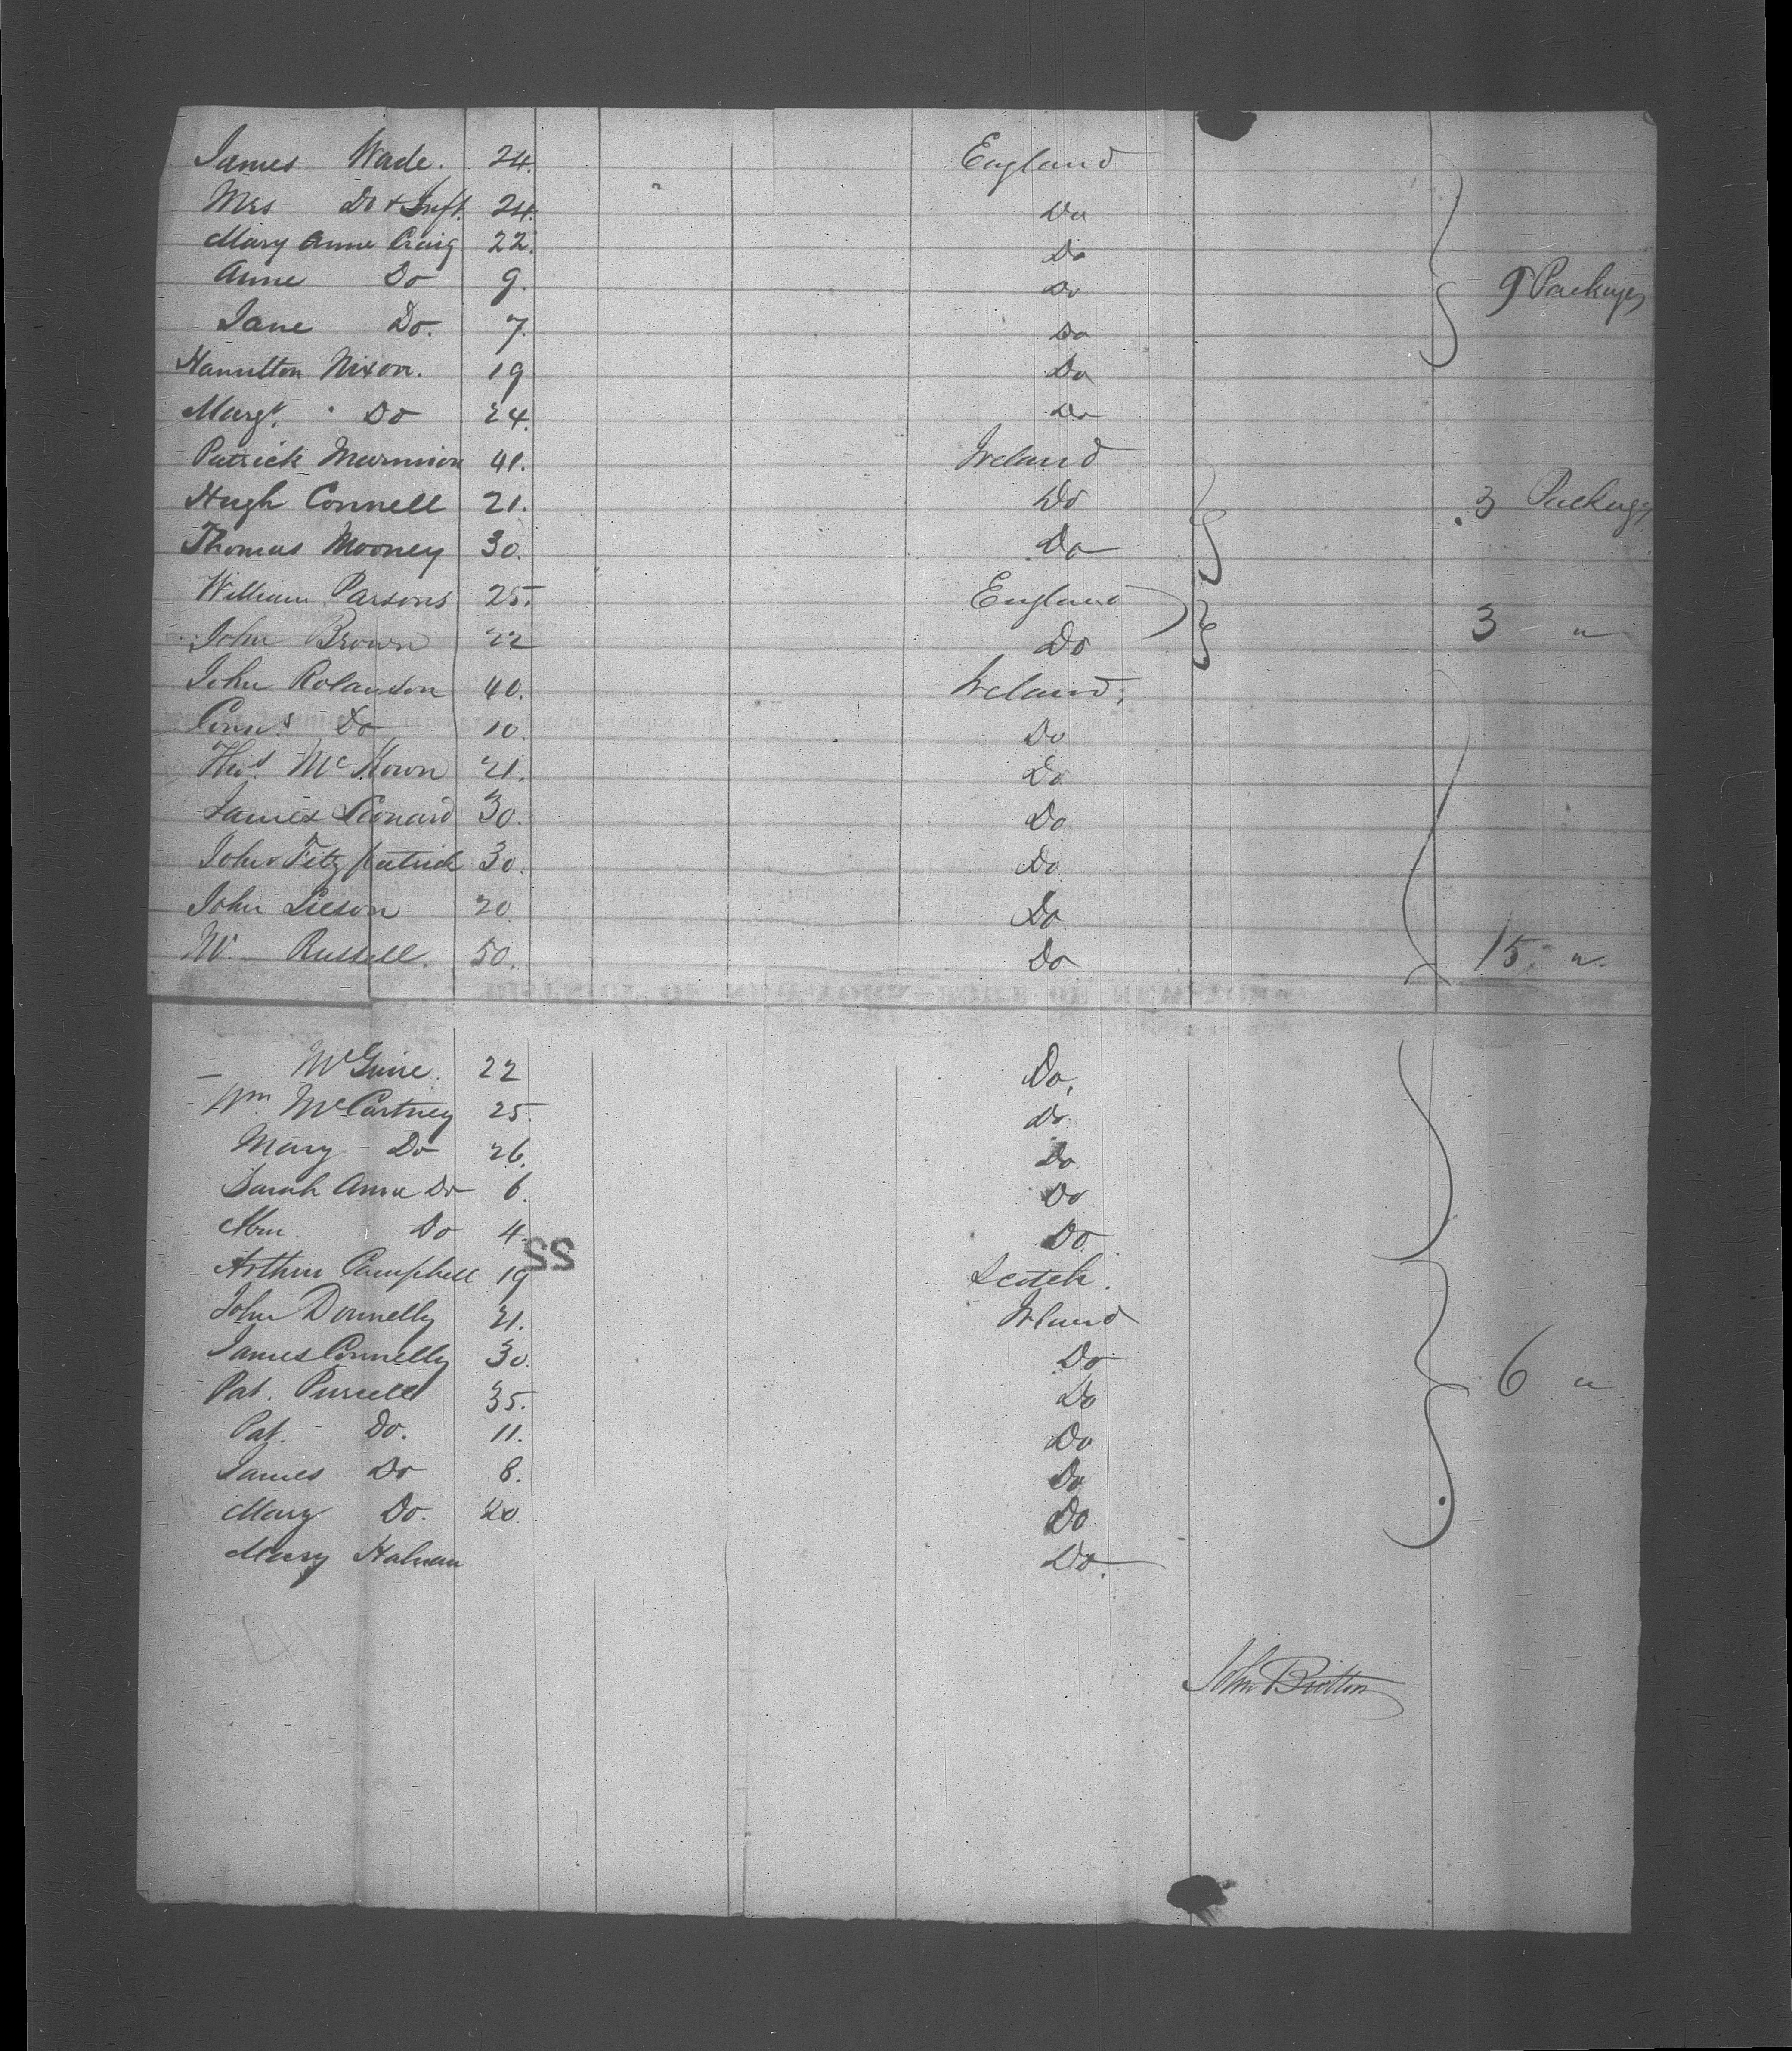 James Wade. 24. England
Mrs Do + Inft. 24. Do
Mary Anne Craig 22. Do
Anne Do 9. Do 9 Packages
Jane Do. 7. Do
Hamilton Nixon. 19 Do
Margt. Do 24. Do
Patrick Murmion 41. Ireland
Hugh Connell 21. Do 3 Packages
Thomas Mooney 30. Do
William Parsons 25. England
John Brown 22 Do 3 "
John Rolandson 40. Ireland.
Corns. Do 10. Do
Thos. McKown 21. Do
James Leonard 30. Do
John Fitzpatrick 30. Do
John Lieson 20 Do
W. Russell. 50. Do 15 "
— McGuire. 22 Do.
Wm. McCartney 25. Do.
Mary Do 26. Do
Sarah Anne Do 6. Do
Do 4. Do
22
Arthur Campbell 19 Scotch.
John Donnelly 21. Ireland
James Connelly 30. Do
Pat. Purcell 35. Do 6 "
Pat. Do. 11. Do
James Do 8. Do
Mary Do. 20. Do
Mary Do.
John Britton